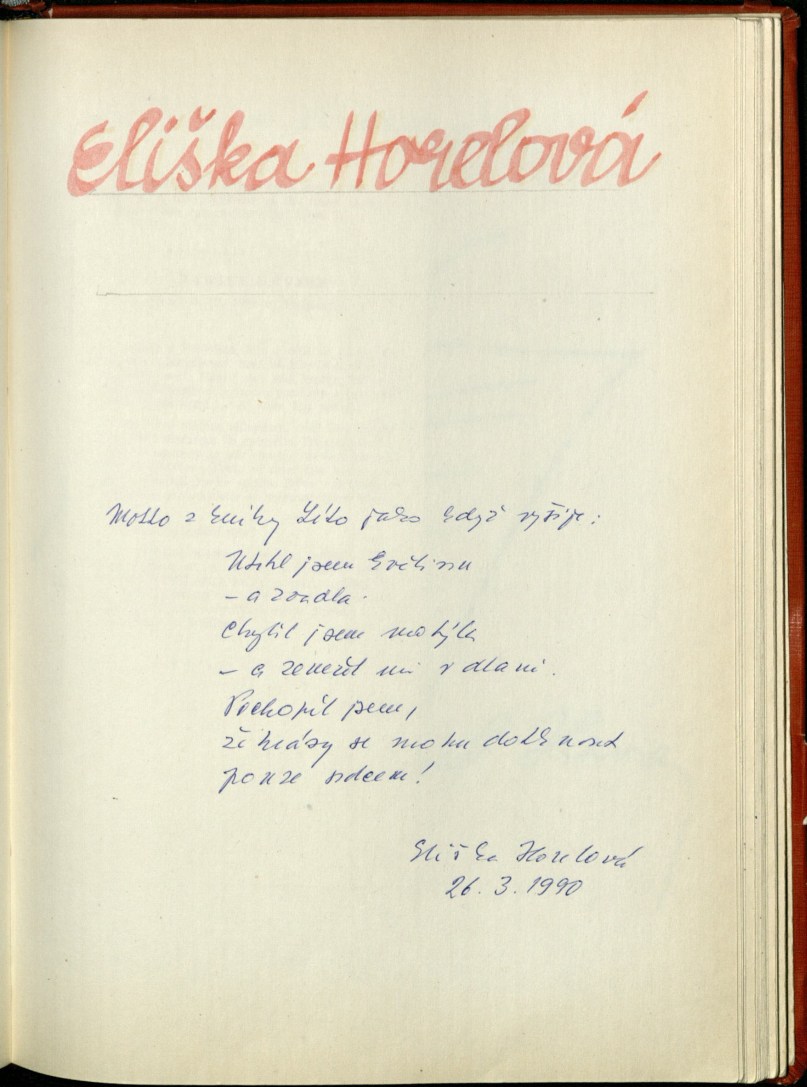 Eliška Horelová
Motto z knihy Léto jako když vyšije:
Utrhl jsem květinu
– a zvadla.
Chytil jsem motýla
– a zemřel mi v dlani.
Pochopil jsem,
že krásy se mohu dotknout
pouze srdcem!
Eliška Horelová
26. 3. 1990